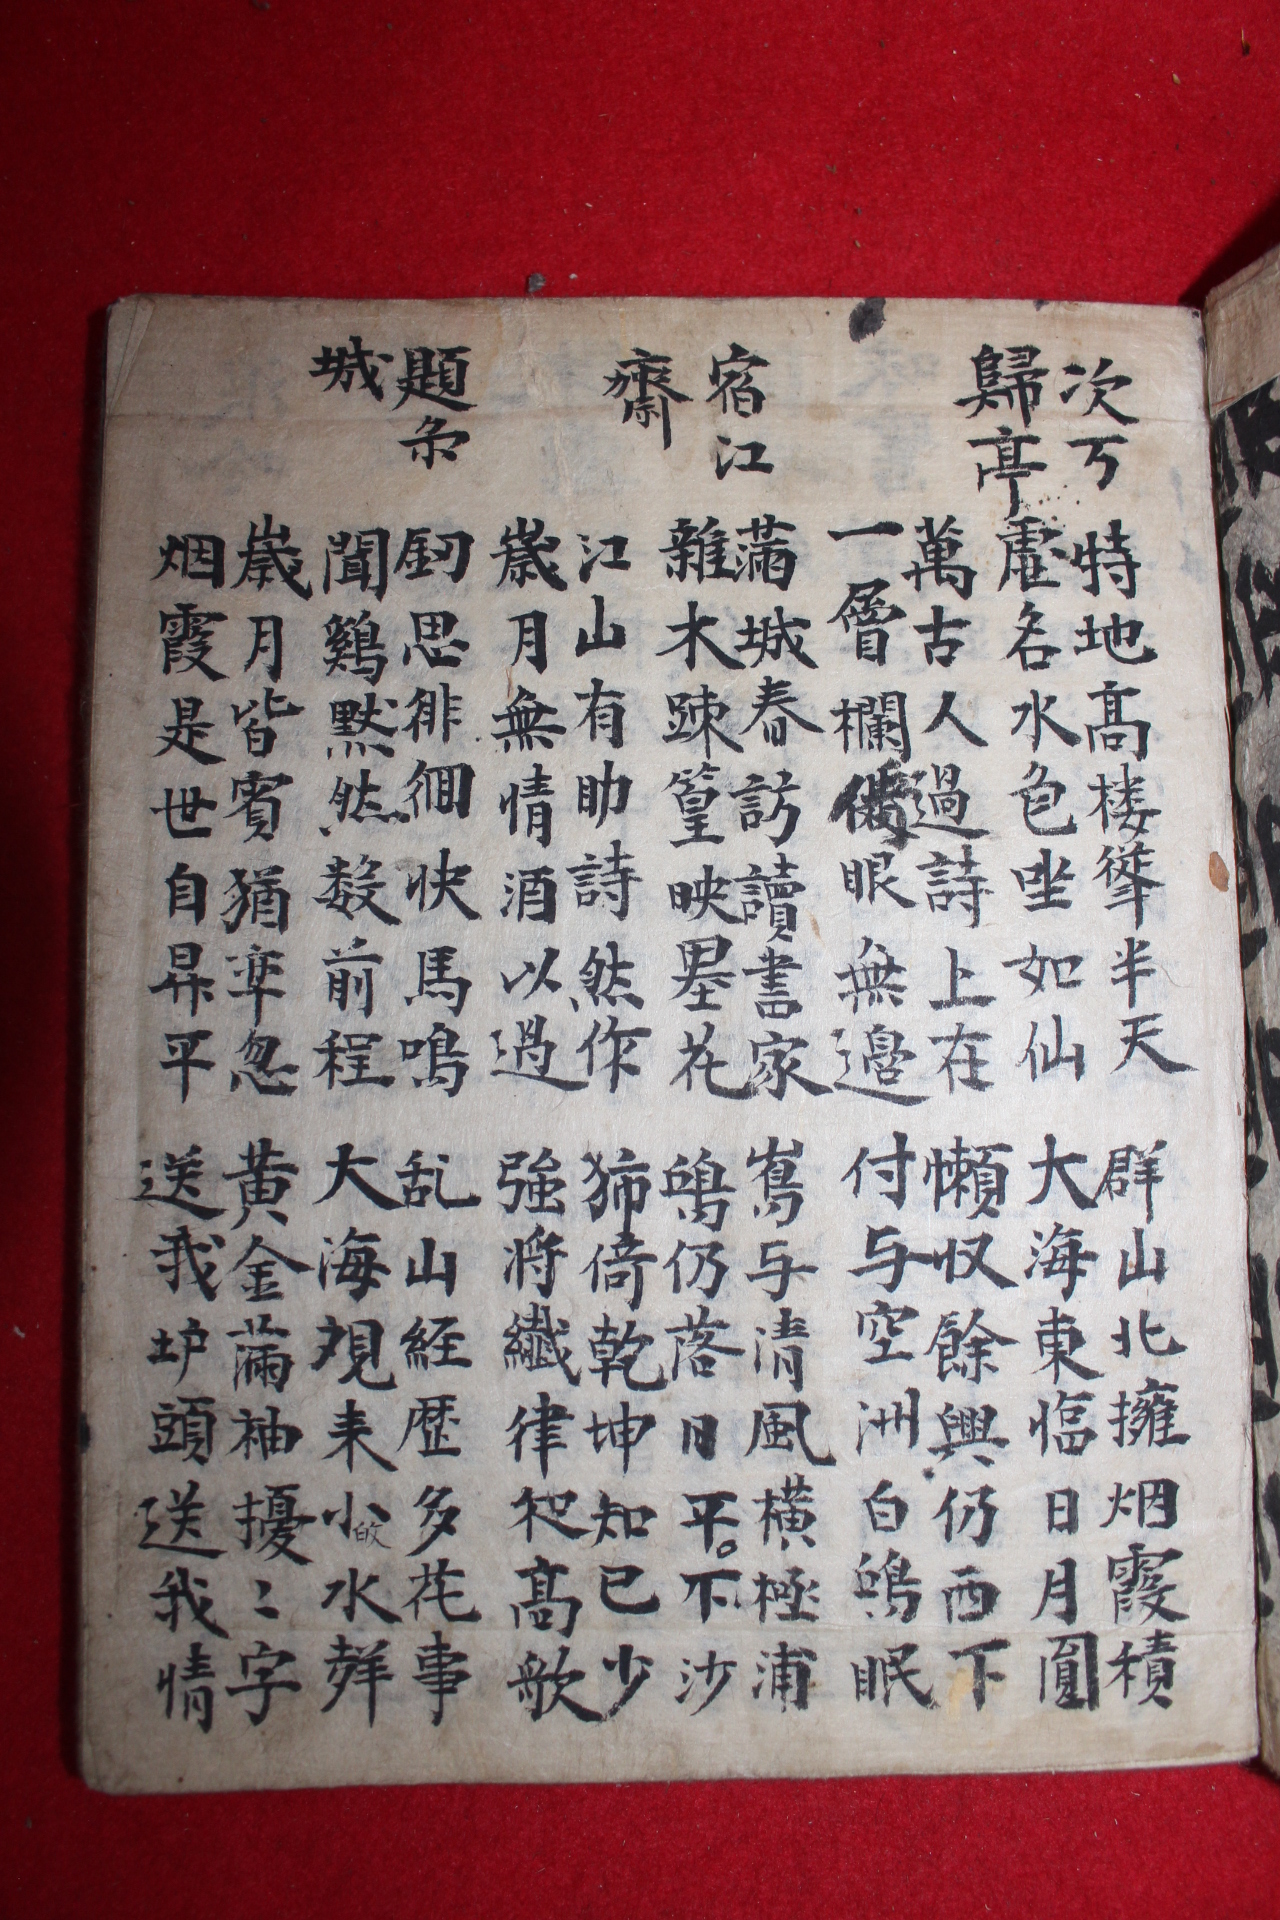 次丂
歸亭
特地高楼聳半天　群山北擁烟霞積
處名水色坐如仙　大海東临日月圓
萬古人過詩上在　懶収餘興仍西下
一層欄 眼無邊　付与空洲白鷗眠
宿江
齋
滿城春訪讀書家　嶌与清風橫極浦
雜木踈篁映墨花　鷗仍落日平不沙
江山有助詩然作　獅倚乾坤知已少
歲月無情酒以過　強将纖律和高歌
題
城
釰思徘徊快馬鳴　乱山経歷多花事
聞鷄默然数前程　大海覌来小水
歲月皆賓猶卒忽　黃金滿袖擾〻字
烟霞是世自昇平　送我炉頭送我情